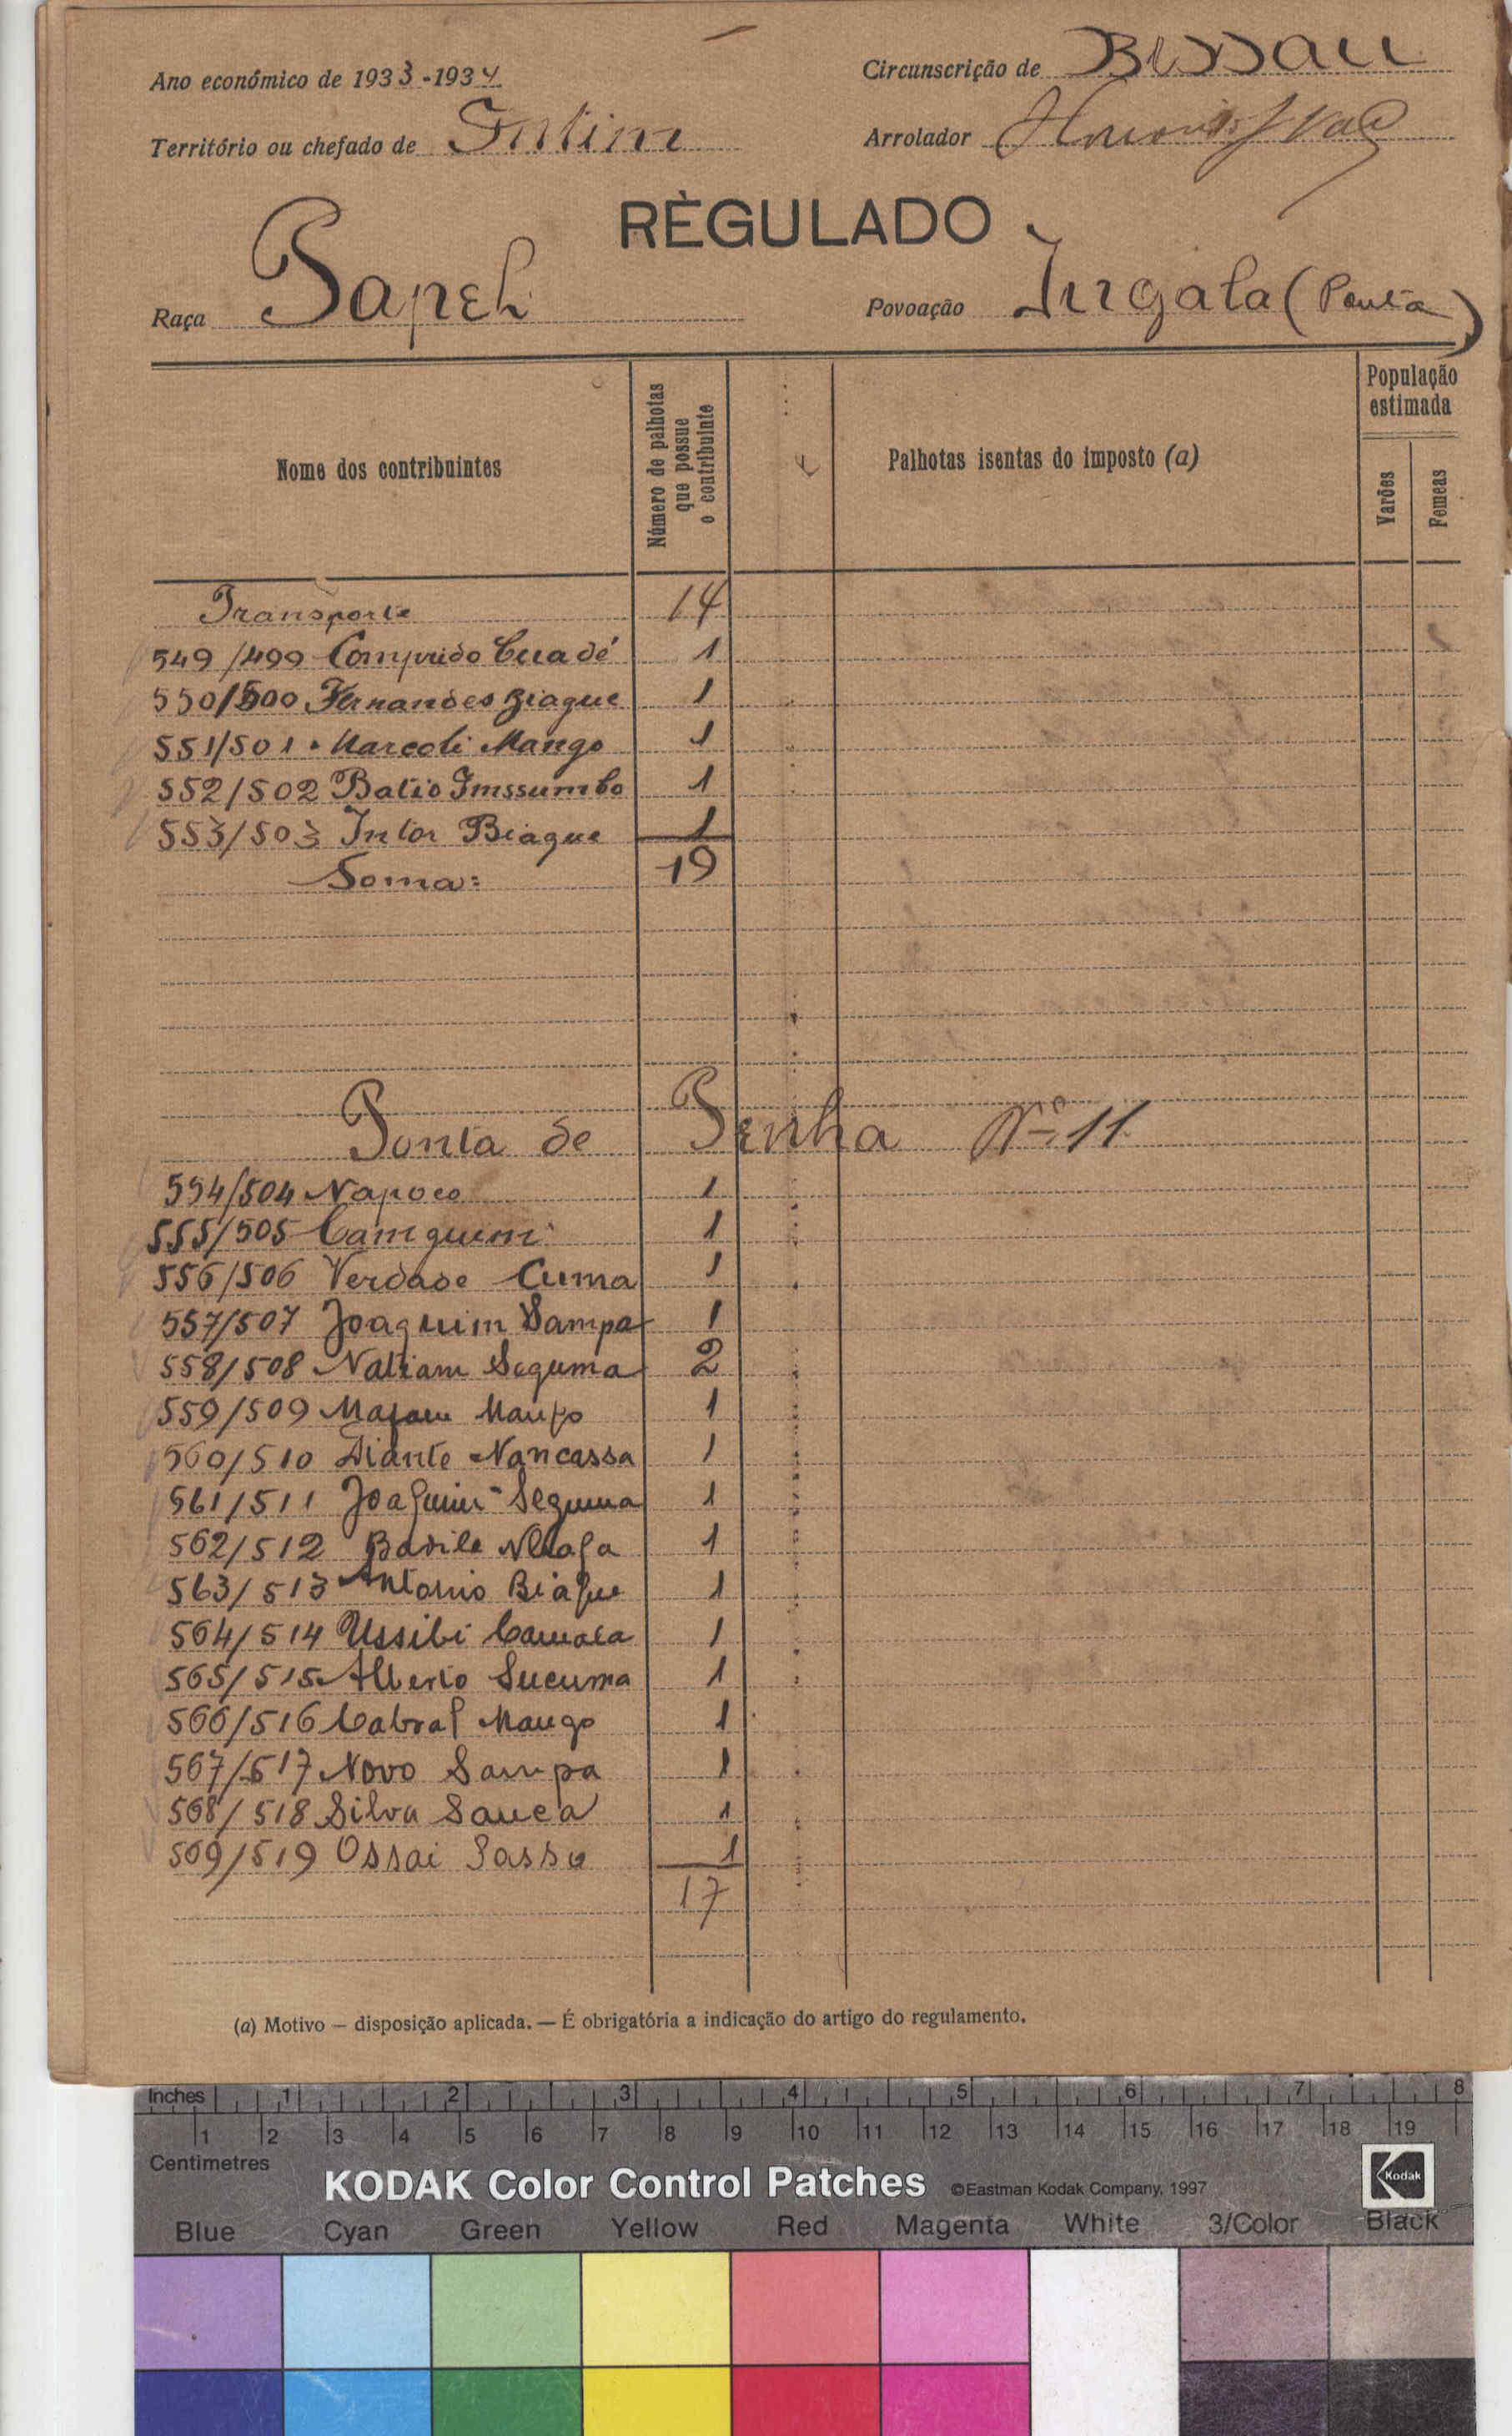 Ano económico de 1933-1934
Circunscrição de Bissau
Território ou chefado de Intim
Arrolador
RÈGULADO
Raça Papel
Povoação Ingala (Ponta)
Nome dos contribuintes
Número de palhotas que possue o contribuinte
Palhotas isentas do imposto (a)
População estimada
Varões
Femeas
Transporte 14
549/499 Comprido Cuadé 1
550/500 Fernandes Biague 1
551/501 Marcoli Mango 1
552/502 Batio Imssumbo 1
553/503 Intor Biague 1
Soma: 19
Ponta de Penha Nº 11
554/504 Napoco 1
555/505 Camquim 1
556/506 Verdade Cuma 1
557/507 Joaquim Sampa 1
558/508 Natiam Seguma 2
559/509 Mango 1
560/510 Diante Nancassa 1
561/511 Joaquim Seguma 1
562/512 1
563/513 Antonio Biague 1
564/514 Ussibi Camara 1
565/515 Alberto Sucuma 1
566/516 Cabral Mango 1
567/517 Novo Sampa 1
568/518 Silva Sanca 1
569/519 Ossai Sasso 1
17
(a) Motivo — disposição aplicada. — É obrigatória a indicação do artigo do regulamento.
Inches 1 2 3 4 5 6 7 8
1 2 3 4 5 6 7 8 9 10 11 12 13 14 15 16 17 18 19
Centimetres
KODAK Color Control Patches ©Eastman Kodak Company, 1997 Kodak
Blue Cyan Green Yellow Red Magenta White 3/Color Black